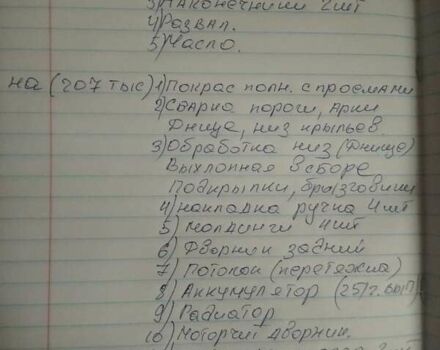 3) Наконечники 2 шт
4) Развал.
5) Масло.
на (207 тыс) 1) Покрас полн. с проемами
2) Сварка пороги, арки
Днище, низ крыльев.
3) Обработка низ (Днище)
Выхлопная в сборе
Подкрылки, брызговики
4) накладка ручка 4 шт
5) молдинги 4 шт
6) Дворник задний
7) Потолок (перетяжка)
8) Аккумулятор (25/г. вып)
9) Радиатор
10) Моторчик дворник.